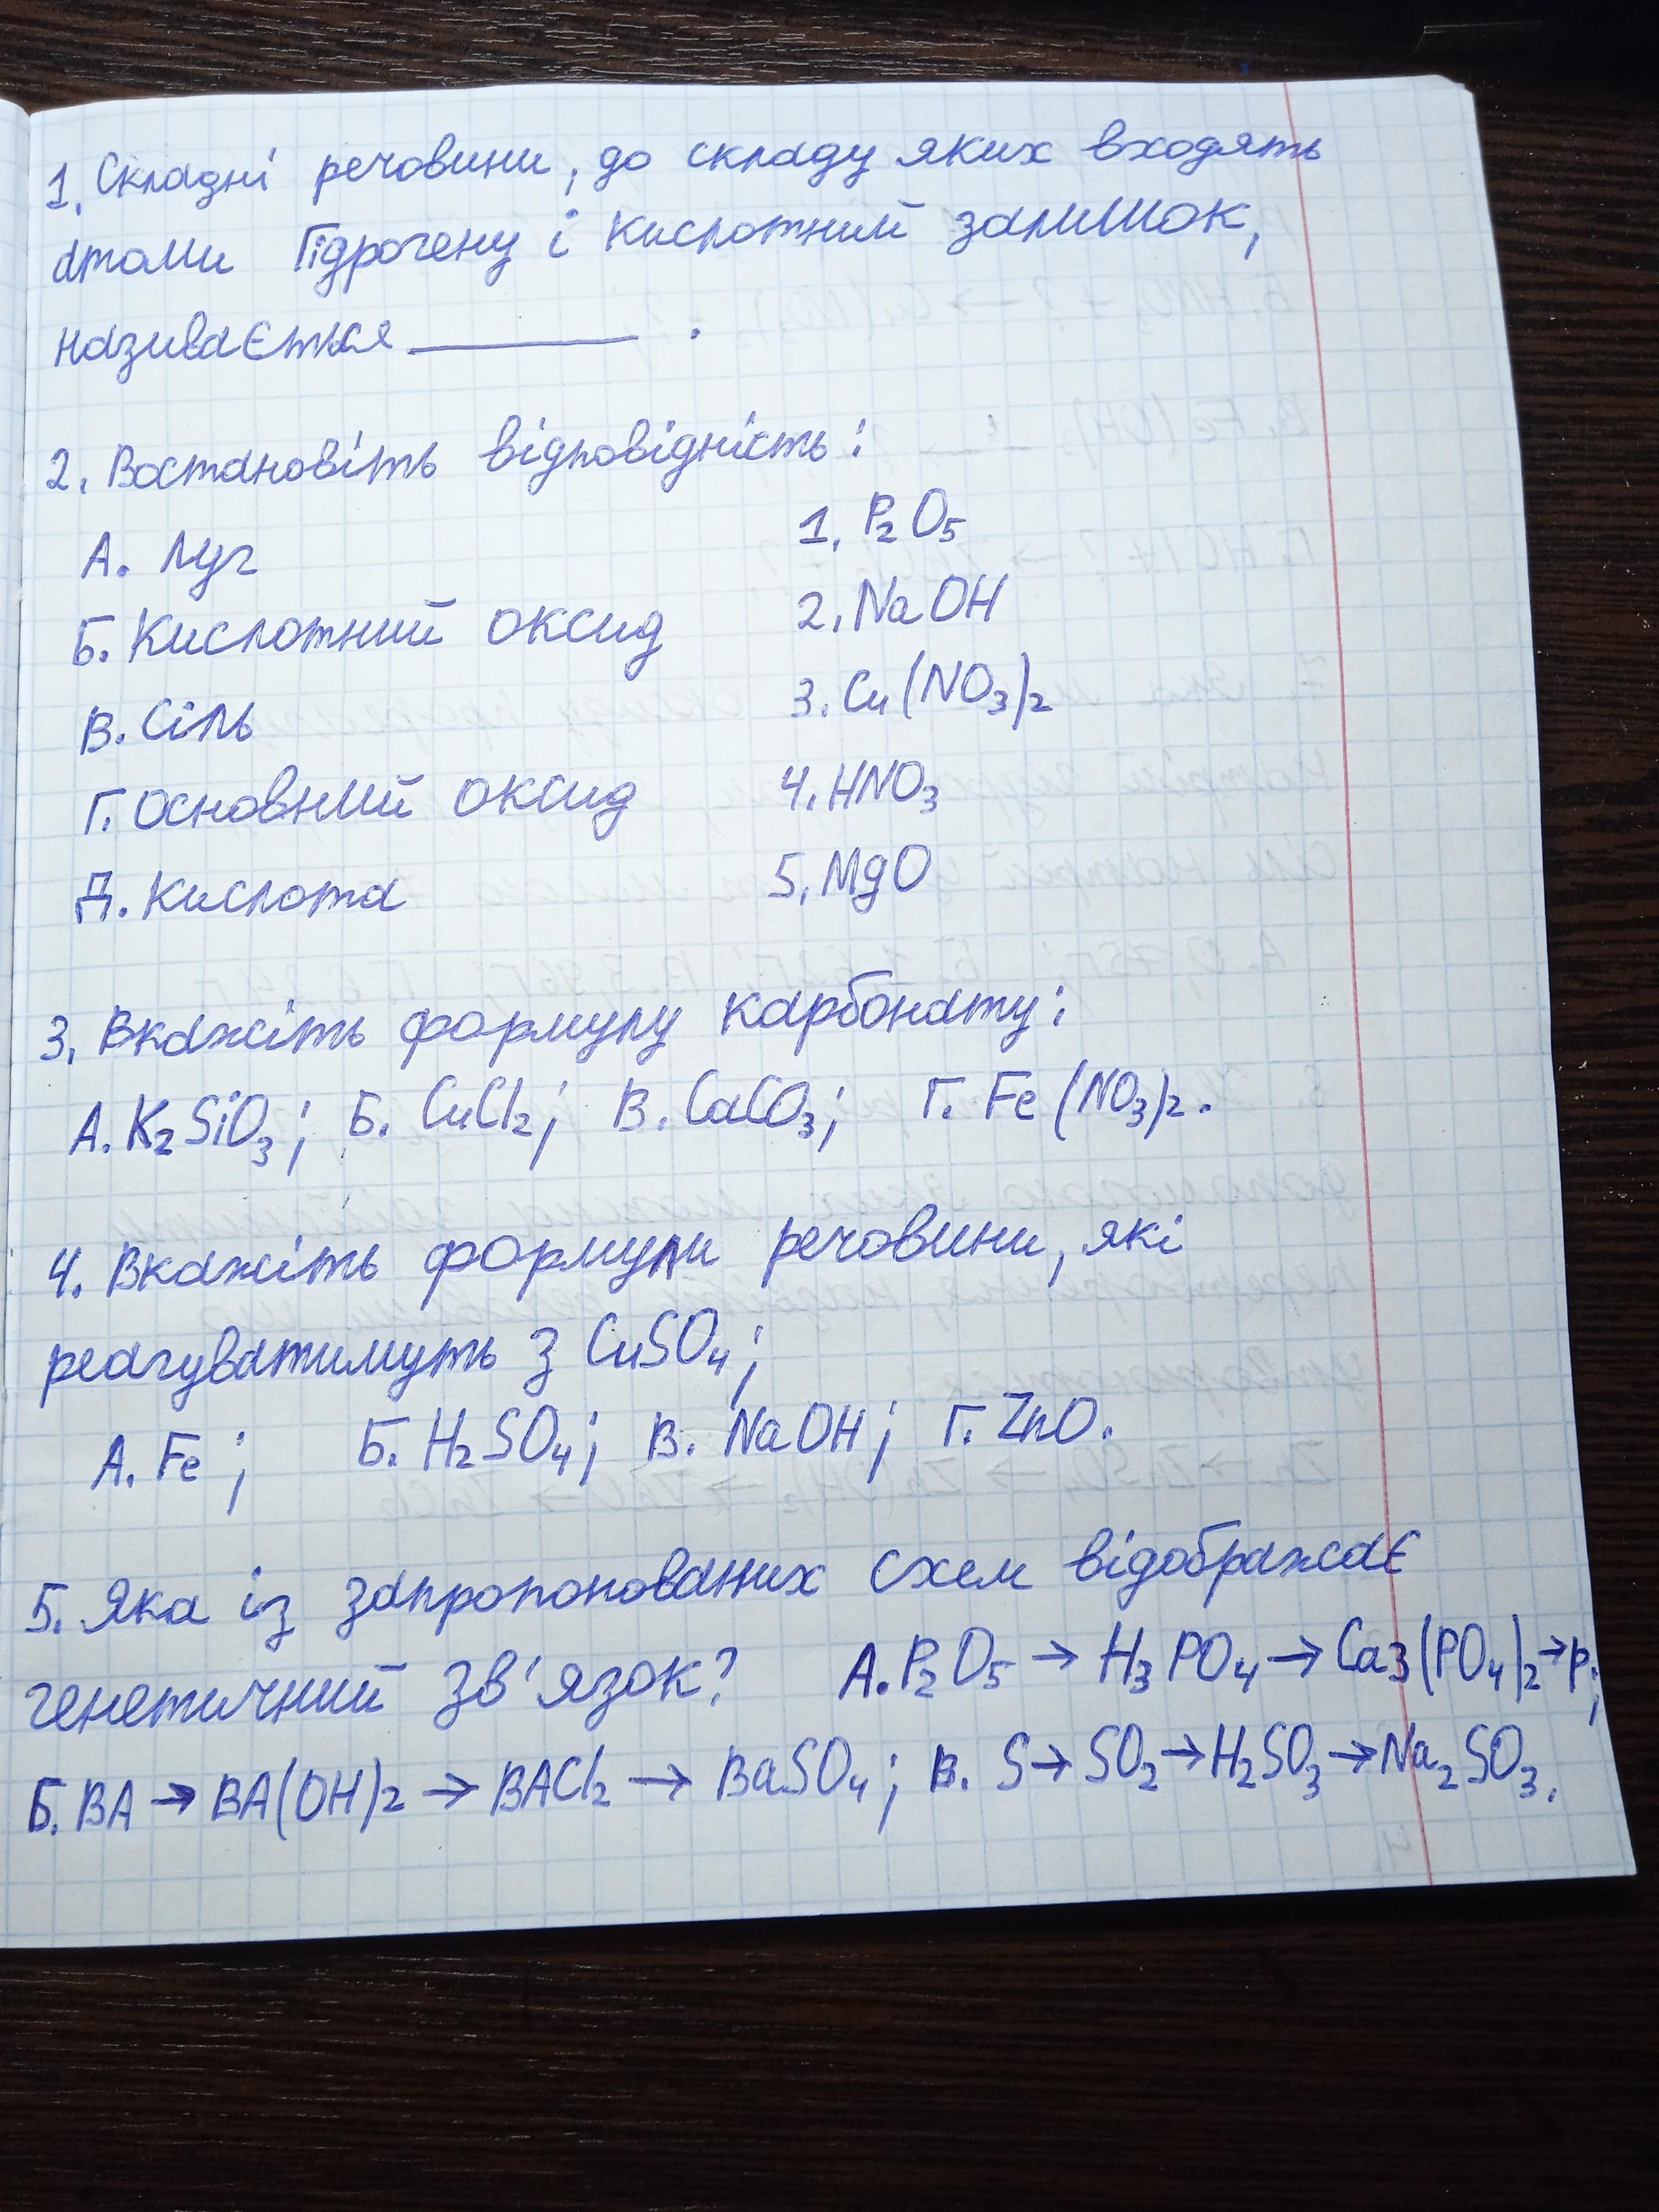 1. Складні речовини, до складу яких входять
атоми Гідрогену і кислотний залишок,
називається ________ .
2. Востановіть відповідність:
А. Луг 1. P₂O₅
Б. Кислотний оксид 2. NaOH
В. Сіль 3. Cu(NO₃)₂
Г. Основний оксид 4. HNO₃
Д. Кислота 5. MgO
3. Вкажіть формулу карбонату:
А. K₂SiO₃; Б. CuCl₂; В. CaCO₃; Г. Fe(NO₃)₂.
4. Вкажіть формули речовини, які
реагуватимуть з CuSO₄;
А. Fe; Б. H₂SO₄; В. NaOH; Г. ZnO.
5. Яка із запропонованих схем відображає
генетичний зв'язок? А. P₂O₅ → H₃PO₄ → Ca₃(PO₄)₂ → P;
Б. BA → BA(OH)₂ → BACl₂ → BaSO₄; В. S → SO₂ → H₂SO₃ → Na₂SO₃.